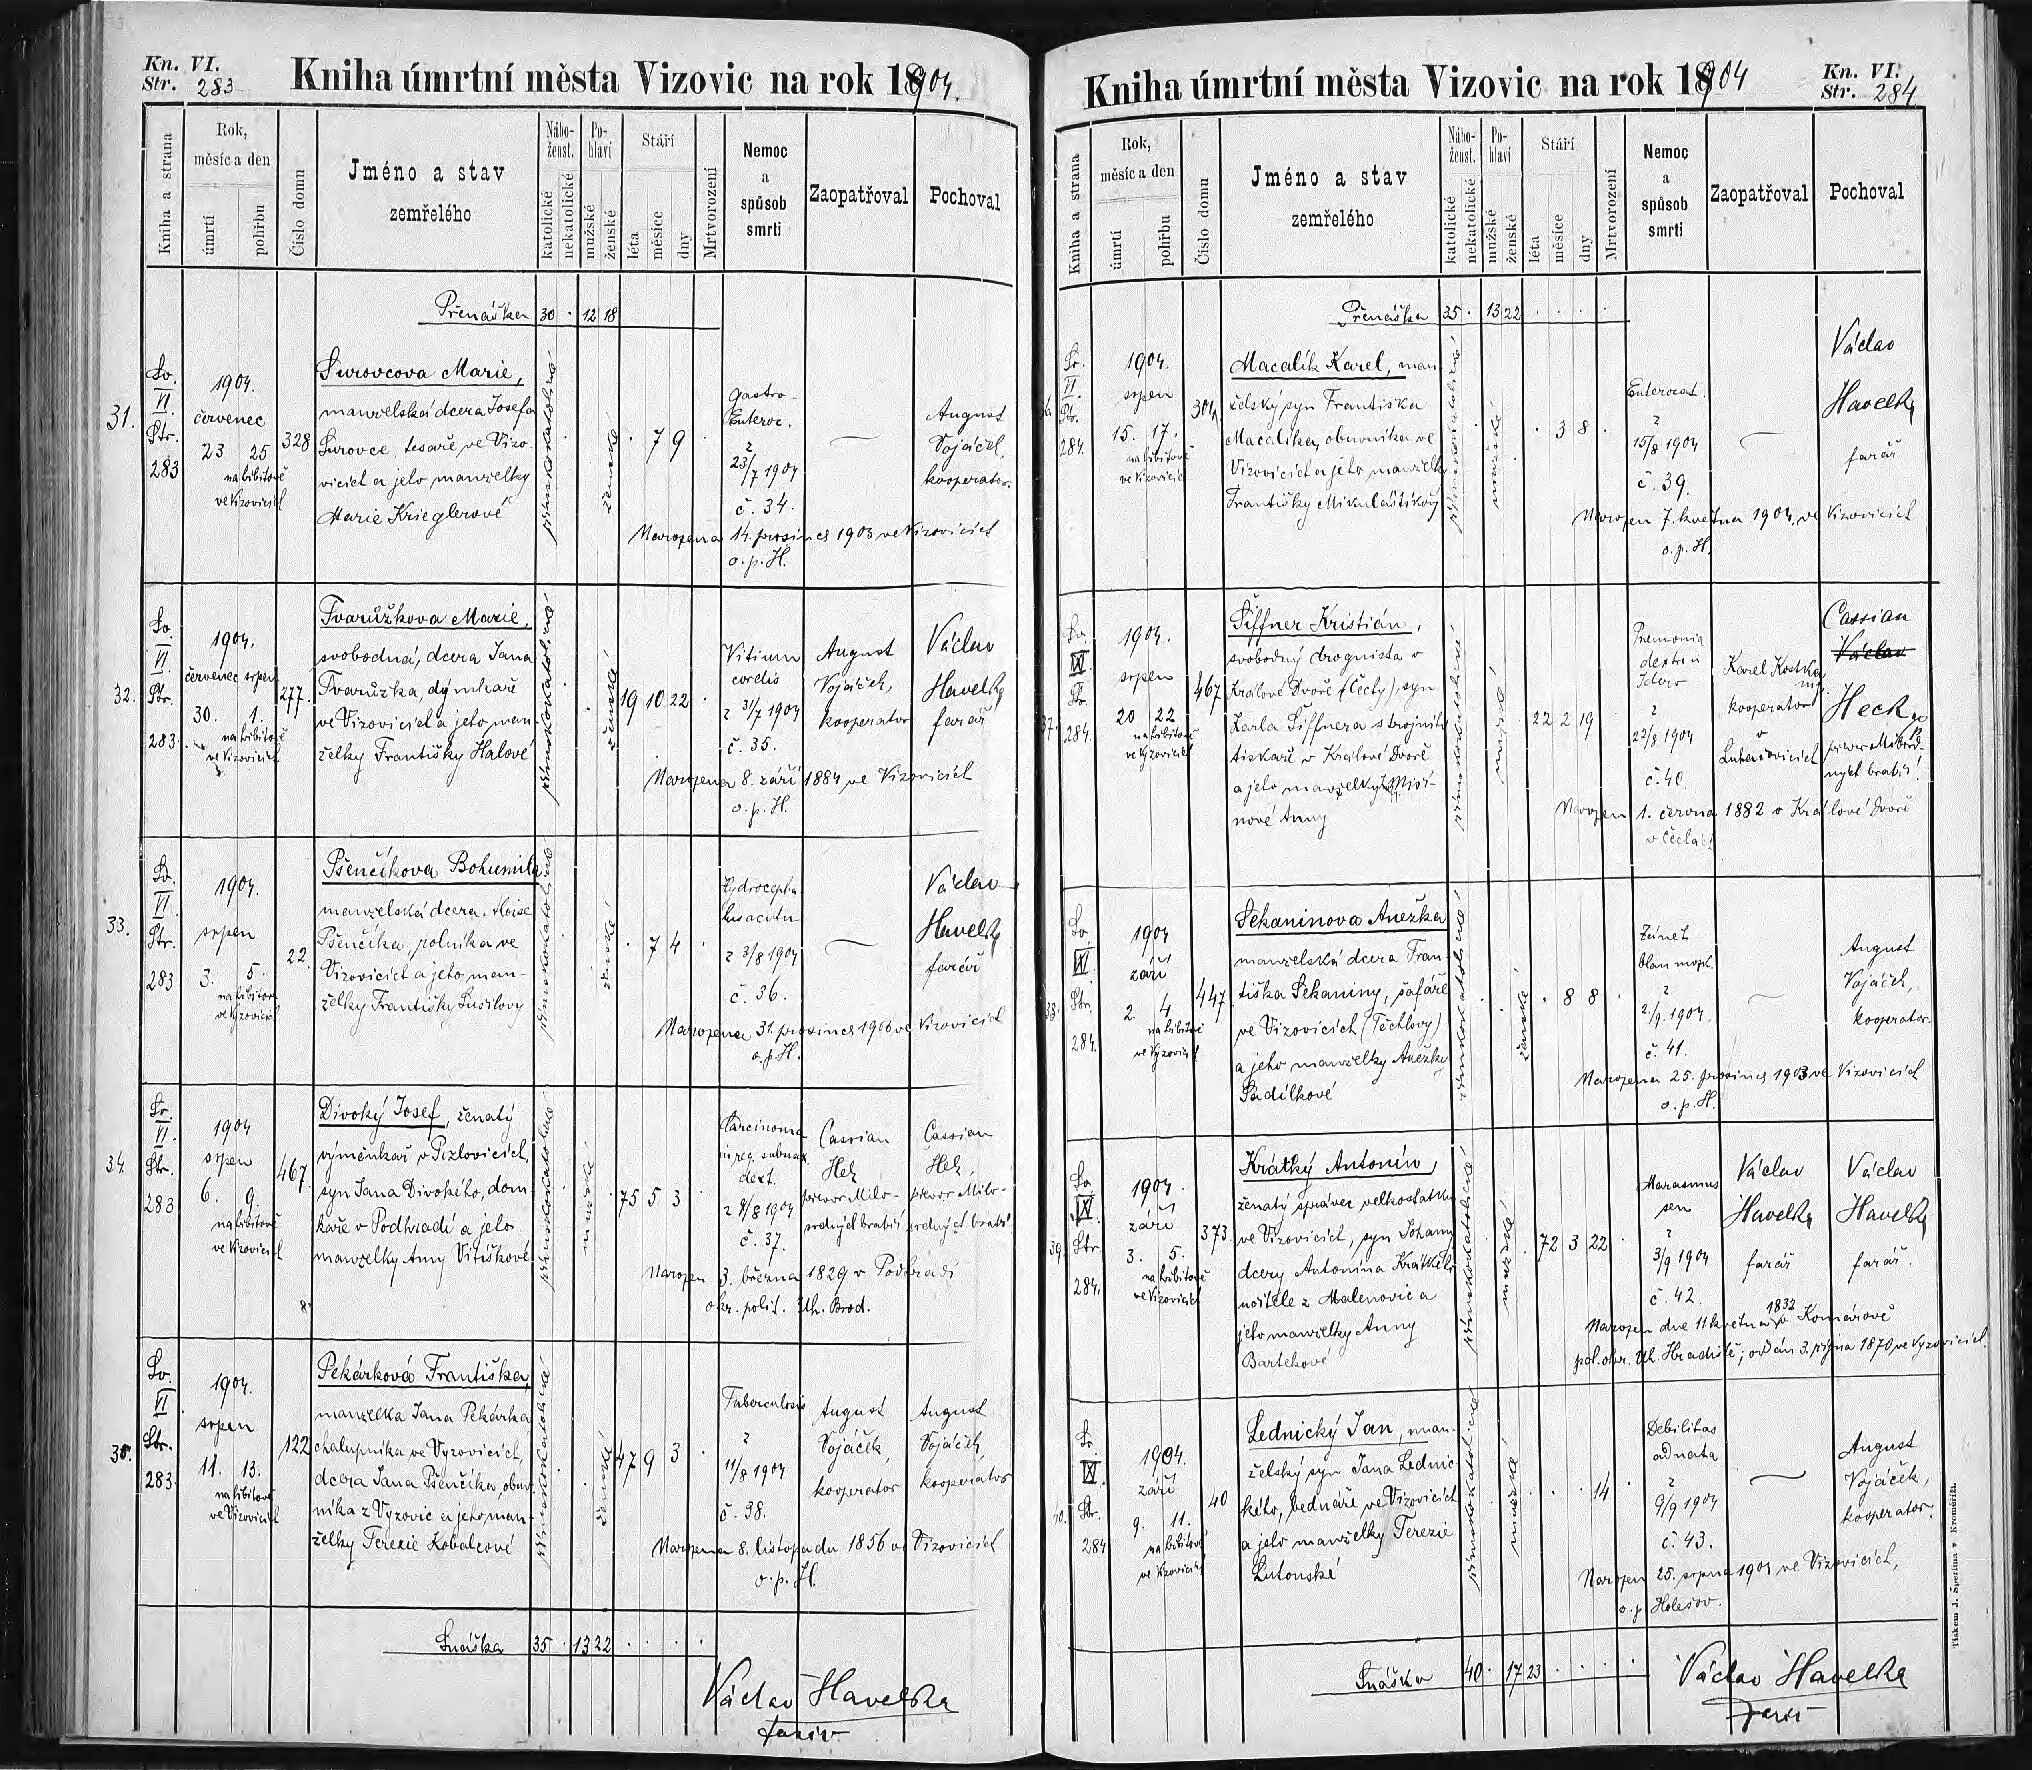 Kn. VI.
Str. 283
Kniha úmrtní města Vizovic na rok 1904.
Kniha a strana
Rok, měsíc a den
úmrtí
pohřbu
Číslo domu
Jméno a stav
zemřelého
Nábo-
ženst.
katolické
nekatolické
Po-
hlaví
mužské
ženské
Stáří
léta
měsíce
dny
Mrtvorození
Nemoc
a
spůsob
smrti
Zaopatřoval
Pochoval
Přenáška 30 · 12 18
31.
Sv.
VI.
Str.
283
1904.
červenec
23 25
na hřbitově
ve Vizovicích
328
Surovcova Marie,
manželská dcera Josefa
Surovce, tesaře ve Vizo-
vicích a jeho manželky
Marie Krieglerové
římskokatolické
ženské
· 7 9 ·
Gastro-
Enteroc.
z
23/7 1904
č. 34.
August
Vojáček,
kooperator
Narozena 14. prosince 1903 ve Vizovicích
o. p. H.
32.
Sv.
VI.
Str.
283.
1904.
červenec srpen
30. 1.
na hřbitově
ve Vizovicích
277.
Tvarůžkova Marie,
svobodná, dcera Jana
Tvarůžka, dýmkaře
ve Vizovicích a jeho man-
želky Františky Halové
římskokatolické
ženské
19 10 22 ·
Vitium
cordis
z 31/7 1904
č. 35.
August
Vojáček,
kooperator
Václav
Havelka
farář
Narozena 8. září 1884 ve Vizovicích
o. p. H.
33.
Sv.
VI.
Str.
283
1904.
srpen
3. 5.
na hřbitově
ve Vizovicích
22.
Pšenčíkova Bohumila
manželská dcera Aloise
Pšenčíka, rolníka ve
Vizovicích a jeho man-
želky Františky Sušilovy
římskokatolické
ženské
· 7 4 ·
z 3/8 1904
č. 36.
Václav
Havelka
farář
Narozena 31. prosince ve Vizovicích
o. p. H.
34.
Sv.
VI.
Str.
283
1904
srpen
6. 9.
na hřbitově
ve Vizovicích
467.
Divoký Josef, ženatý
výměnkář v Pozlovicích,
syn Jana Divokého, dom-
káře v Podhradí a jeho
manželky Anny Vitáškové
římskokatolické
mužské
75 5 3
Carcinoma
in reg. submax.
dext.
č. 37.
Cassian
Hek,
převor Milo-
srdných bratří
Cassian
Hek,
převor Milo-
srdných bratří
Narozen 3. března 1829 v Podhradí
okr. polit. Uh. Brod.
35.
Sv.
VI
Str.
283.
1904.
srpen
11. 13.
na hřbitově
ve Vizovicích
122
Pekárková Františka,
manželka Jana Pekárka
chalupníka ve Vyzovicích,
dcera Jana Pšenčíka, obuv-
níka z Vyzovic a jeho man-
želky Terezie Kobalcové
římskokatolické
ženské
47 9 3 ·
Tuberculosis
z
11/8 1904
č. 38.
August
Vojáček
kooperator
August
Vojáček,
kooperator
Narozena 8. listopadu 1856 ve Vizovicích
o. p. H.
Snáška 35 · 13 22 · · · ·
Václav Havelka
farář
Kn. VI.
Str. 284
Kniha úmrtní města Vizovic na rok 1904
Kniha a strana
Rok,
měsíc a den
úmrtí
pohřbu
Číslo domu
Jméno a stav
zemřelého
Nábo-
ženst.
katolické
nekatolické
Po-
hlaví
mužské
ženské
Stáří
léta
měsíce
dny
Mrtvorození
Nemoc
a
spůsob
smrti
Zaopatřoval
Pochoval
Přenáška 35 · 13 22 · · · ·
36.
Sv.
VI.
Str.
284.
1904.
srpen
15. 17.
na hřbitově
ve Vizovicích
Macalík Karel, man-
želský syn Františka
Macalíka, obuvníka ve
Vizovicích a jeho manželky
Františky Mikuláštíkovy
římskokatolické
mužské
· 3 8 ·
Enterocat.
z
15/8 1904
č. 39.
Václav
Havelka
farář
Narozen 7. května 1904 ve Vizovicích
o. p. H.
37.
Sv.
VI.
Str.
284.
1904.
srpen
20 22
na hřbitově
ve Vyzovicích
467
Šiffner Kristián,
svobodný drogista v
Králové Dvoře (Čechy), syn
Karla Šiffnera strojního
tiskaře v Králové Dvoře
a jeho manželky
nové Anny
římskokatolické
mužské
22 2 19
z
22/8 1904
č. 40.
Karel Kostka
kooperator
v
Luhačovicích
Cassian
Václav
Heck
převor Milosrd-
ných bratří
Narozen 1. června 1882 v Králové Dvoře
v Čechách
38.
Sv.
VI.
Str.
284.
1904
září
2 4
na hřbitově
ve Vyzovicích
447
Sekaninova Anežka
manželská dcera Fran-
tiška Sekaniny, šafáře
ve Vizovicích (Těchlovy)
a jeho manželky Anežky
Sadílkové
římskokatolické
ženské
· 8 8 ·
Zánět
blan mozk.
z
2/9 1904.
č. 41.
August
Vojáček,
kooperator.
Narozena 25. prosince 1903 ve Vizovicích
o. p. H.
39.
Sv.
VI.
Str.
284.
1904.
září
3. 5.
na hřbitově
ve Vizovicích
373.
Krátký Antonín,
ženatý správce velkostatku
ve Vizovicích, syn Johanny
dcery Antonína Krátkého
učitele z Malenovic a
jeho manželky Anny
Bartkové
římskokatolické
mužské
72 3 22 ·
Marasmus
sen
z
3/9 1904
č. 42.
Václav
Havelka
farář
Václav
Havelka
farář.
Narozen dne 11 května 1832 v Komárově
pol. okr. Uh. Hradiště; oddán 3. října 1870 ve Vyzovicích.
40.
Sv.
Str.
284
1904.
září
9. 11.
na hřbitově
ve Vizovicích
40
Lednický Jan, man-
želský syn Jana Lednic-
kého, bednáře ve Vizovicích
a jeho manželky Terezie
Lutonské
římskokatolické
mužské
· · 14 ·
Debilitas
adnata
z
9/9 1904
č. 43.
August
Vojáček,
kooperator.
Narozen 25. srpna 1904 ve Vizovicích,
o. p. Holešov.
Snáška 40 · 17 23 · · · ·
Václav Havelka
farář
Tiskem J. Šperlína v Kroměříži.